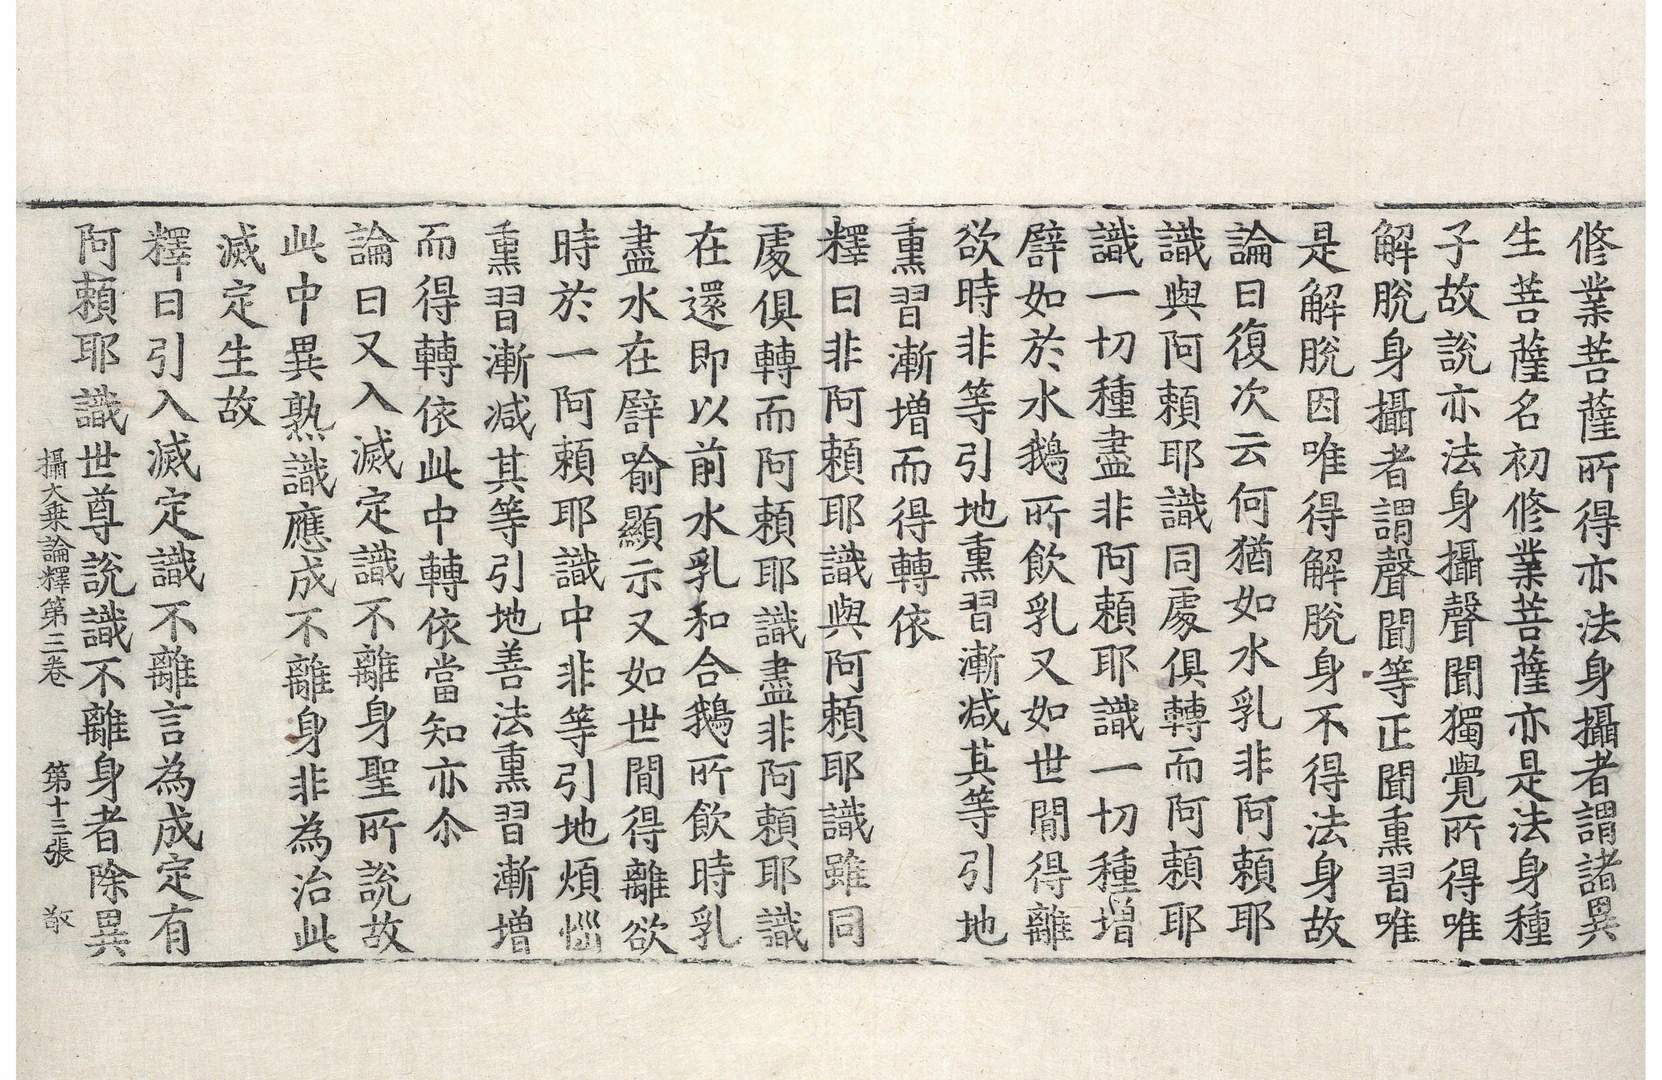 修業菩薩所得亦法身攝者謂諸異
生菩薩名初修業菩薩亦是法身種
子故說亦法身攝聲聞獨覺所得唯
解脫身攝者謂聲聞等正聞熏習唯
是解脫因唯得解脫身不得法身故
論曰復次云何猶如水乳非阿賴耶
識與阿賴耶識同處俱轉而阿賴耶
識一切種盡非阿賴耶識一切種增
譬如於水鵝所飲乳又如世間得離
欲時非等引地熏習漸減其等引地
熏習漸增而得轉依
釋曰非阿賴耶識與阿賴耶識雖同
處俱轉而阿賴耶識盡非阿賴耶識
在還即以前水乳和合鵝所飲時乳
盡水在譬喻顯示又如世間得離欲
時於一阿賴耶識中非等引地煩惱
熏習漸減其等引地善法熏習漸增
而得轉依此中轉依當知亦尒
論曰又入滅定識不離身聖所說故
此中異熟識應成不離身非為治此
滅定生故
釋曰引入滅定識不離言為成定有
阿賴耶識世尊說識不離身者除異
攝大乗論釋第三卷 第十三張 敬